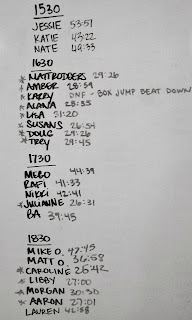 1530
JESSIE 53:57
KATIE 43:22
NATE 49:33
1630
* MATT RODGERS 29:26
* AMBER 28:59
* KACEY DNF - BOX JUMP BEAT DOWN
* ALANA 28:55
* LISA 31:20
* SUSANS 26:54
* DOUG 29:26
* TREY 29:45
1730
MEBO 44:39
RAFI 41:33
NIKKI 42:41
* JULIANNE 26:31
BA 39:45
1830
MIKE O. 47:45
MATT O. 36:58
* CAROLINE 25:42
* LIBBY 27:00
* MORGAN 30:30
* AARON 27:01
LAUREN 42:58